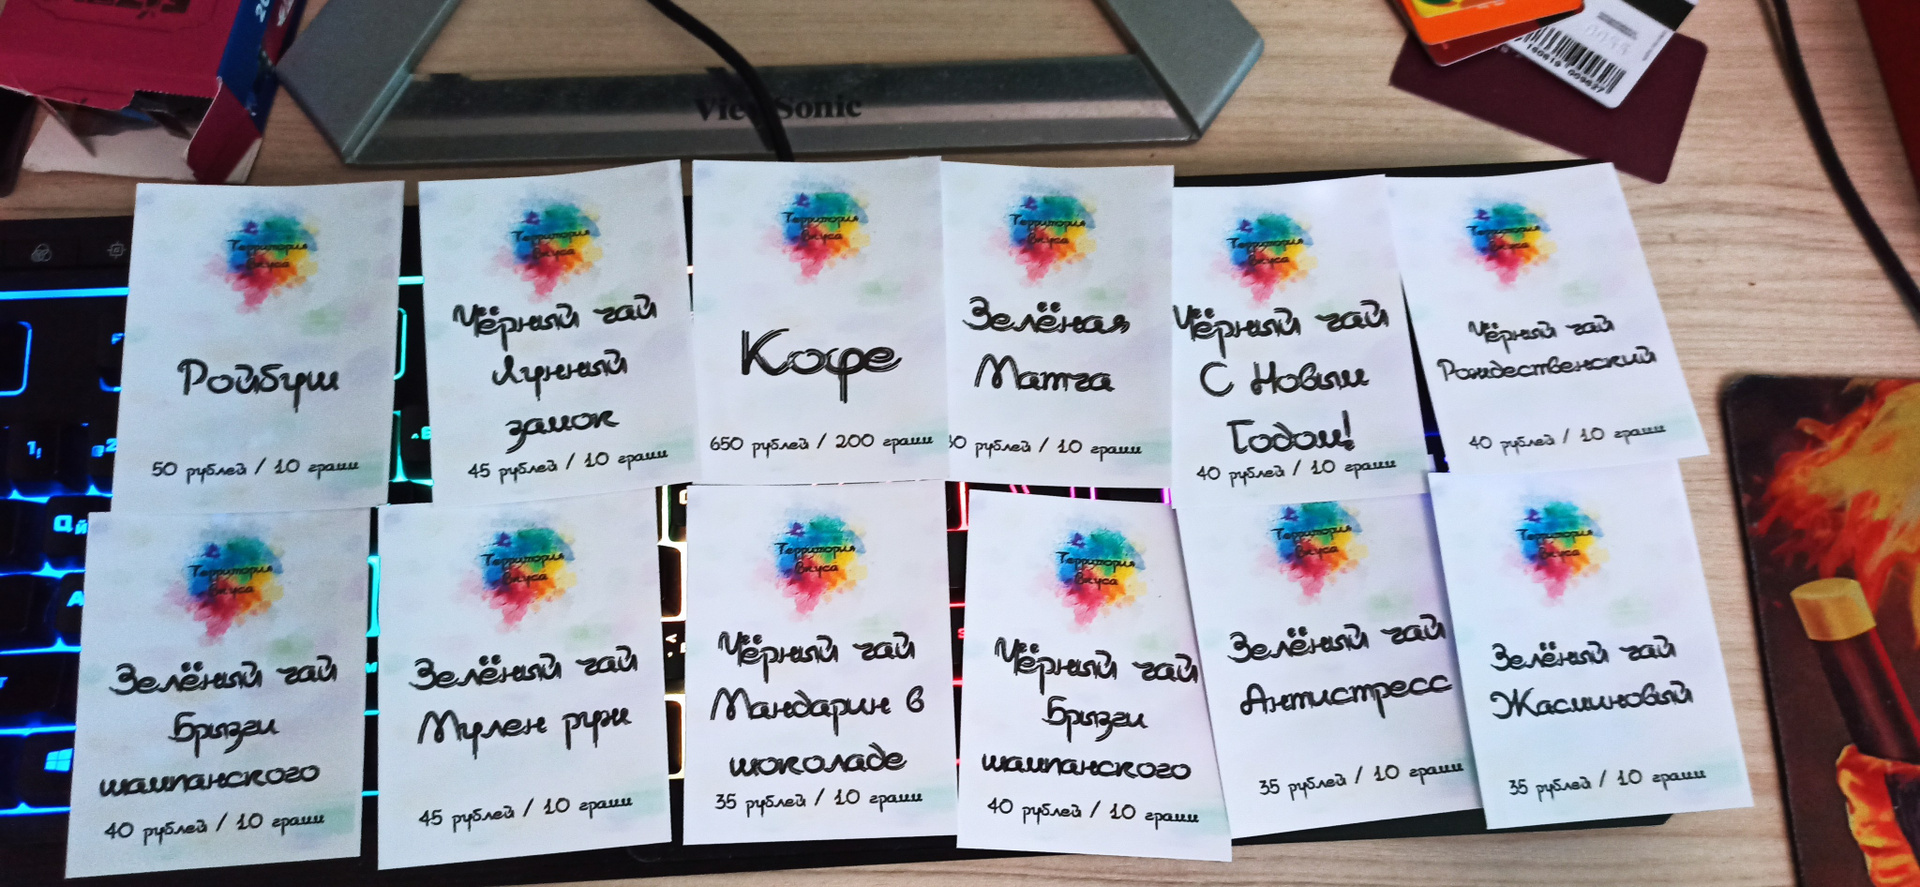 ViewSonic
Территория
Вкуса
Ройбуш
50 рублей / 10 грамм
Территория
Вкуса
Чёрный чай
Лунный
замок
45 рублей / 10 грамм
Территория
Вкуса
Кофе
650 рублей / 200 грамм
Территория
Вкуса
Зелёная
Матча
0 рублей / 10 грамм
Территория
Вкуса
Чёрный чай
С Новым
Годом!
40 рублей / 10 грамм
Территория
Вкуса
Чёрный чай
Рождественский
40 рублей / 10 грамм
Территория
Вкуса
Зелёный чай
Брызги
шампанского
40 рублей / 10 грамм
Территория
Вкуса
Зелёный чай
Мулен руж
45 рублей / 10 грамм
Территория
Вкуса
Чёрный чай
Мандарин в
шоколаде
35 рублей / 10 грамм
Территория
Вкуса
Чёрный чай
Брызги
шампанского
40 рублей / 10 грамм
Территория
Вкуса
Зелёный чай
Антистресс
35 рублей / 10 грамм
Территория
Вкуса
Зелёный чай
Жасминовый
35 рублей / 10 грамм